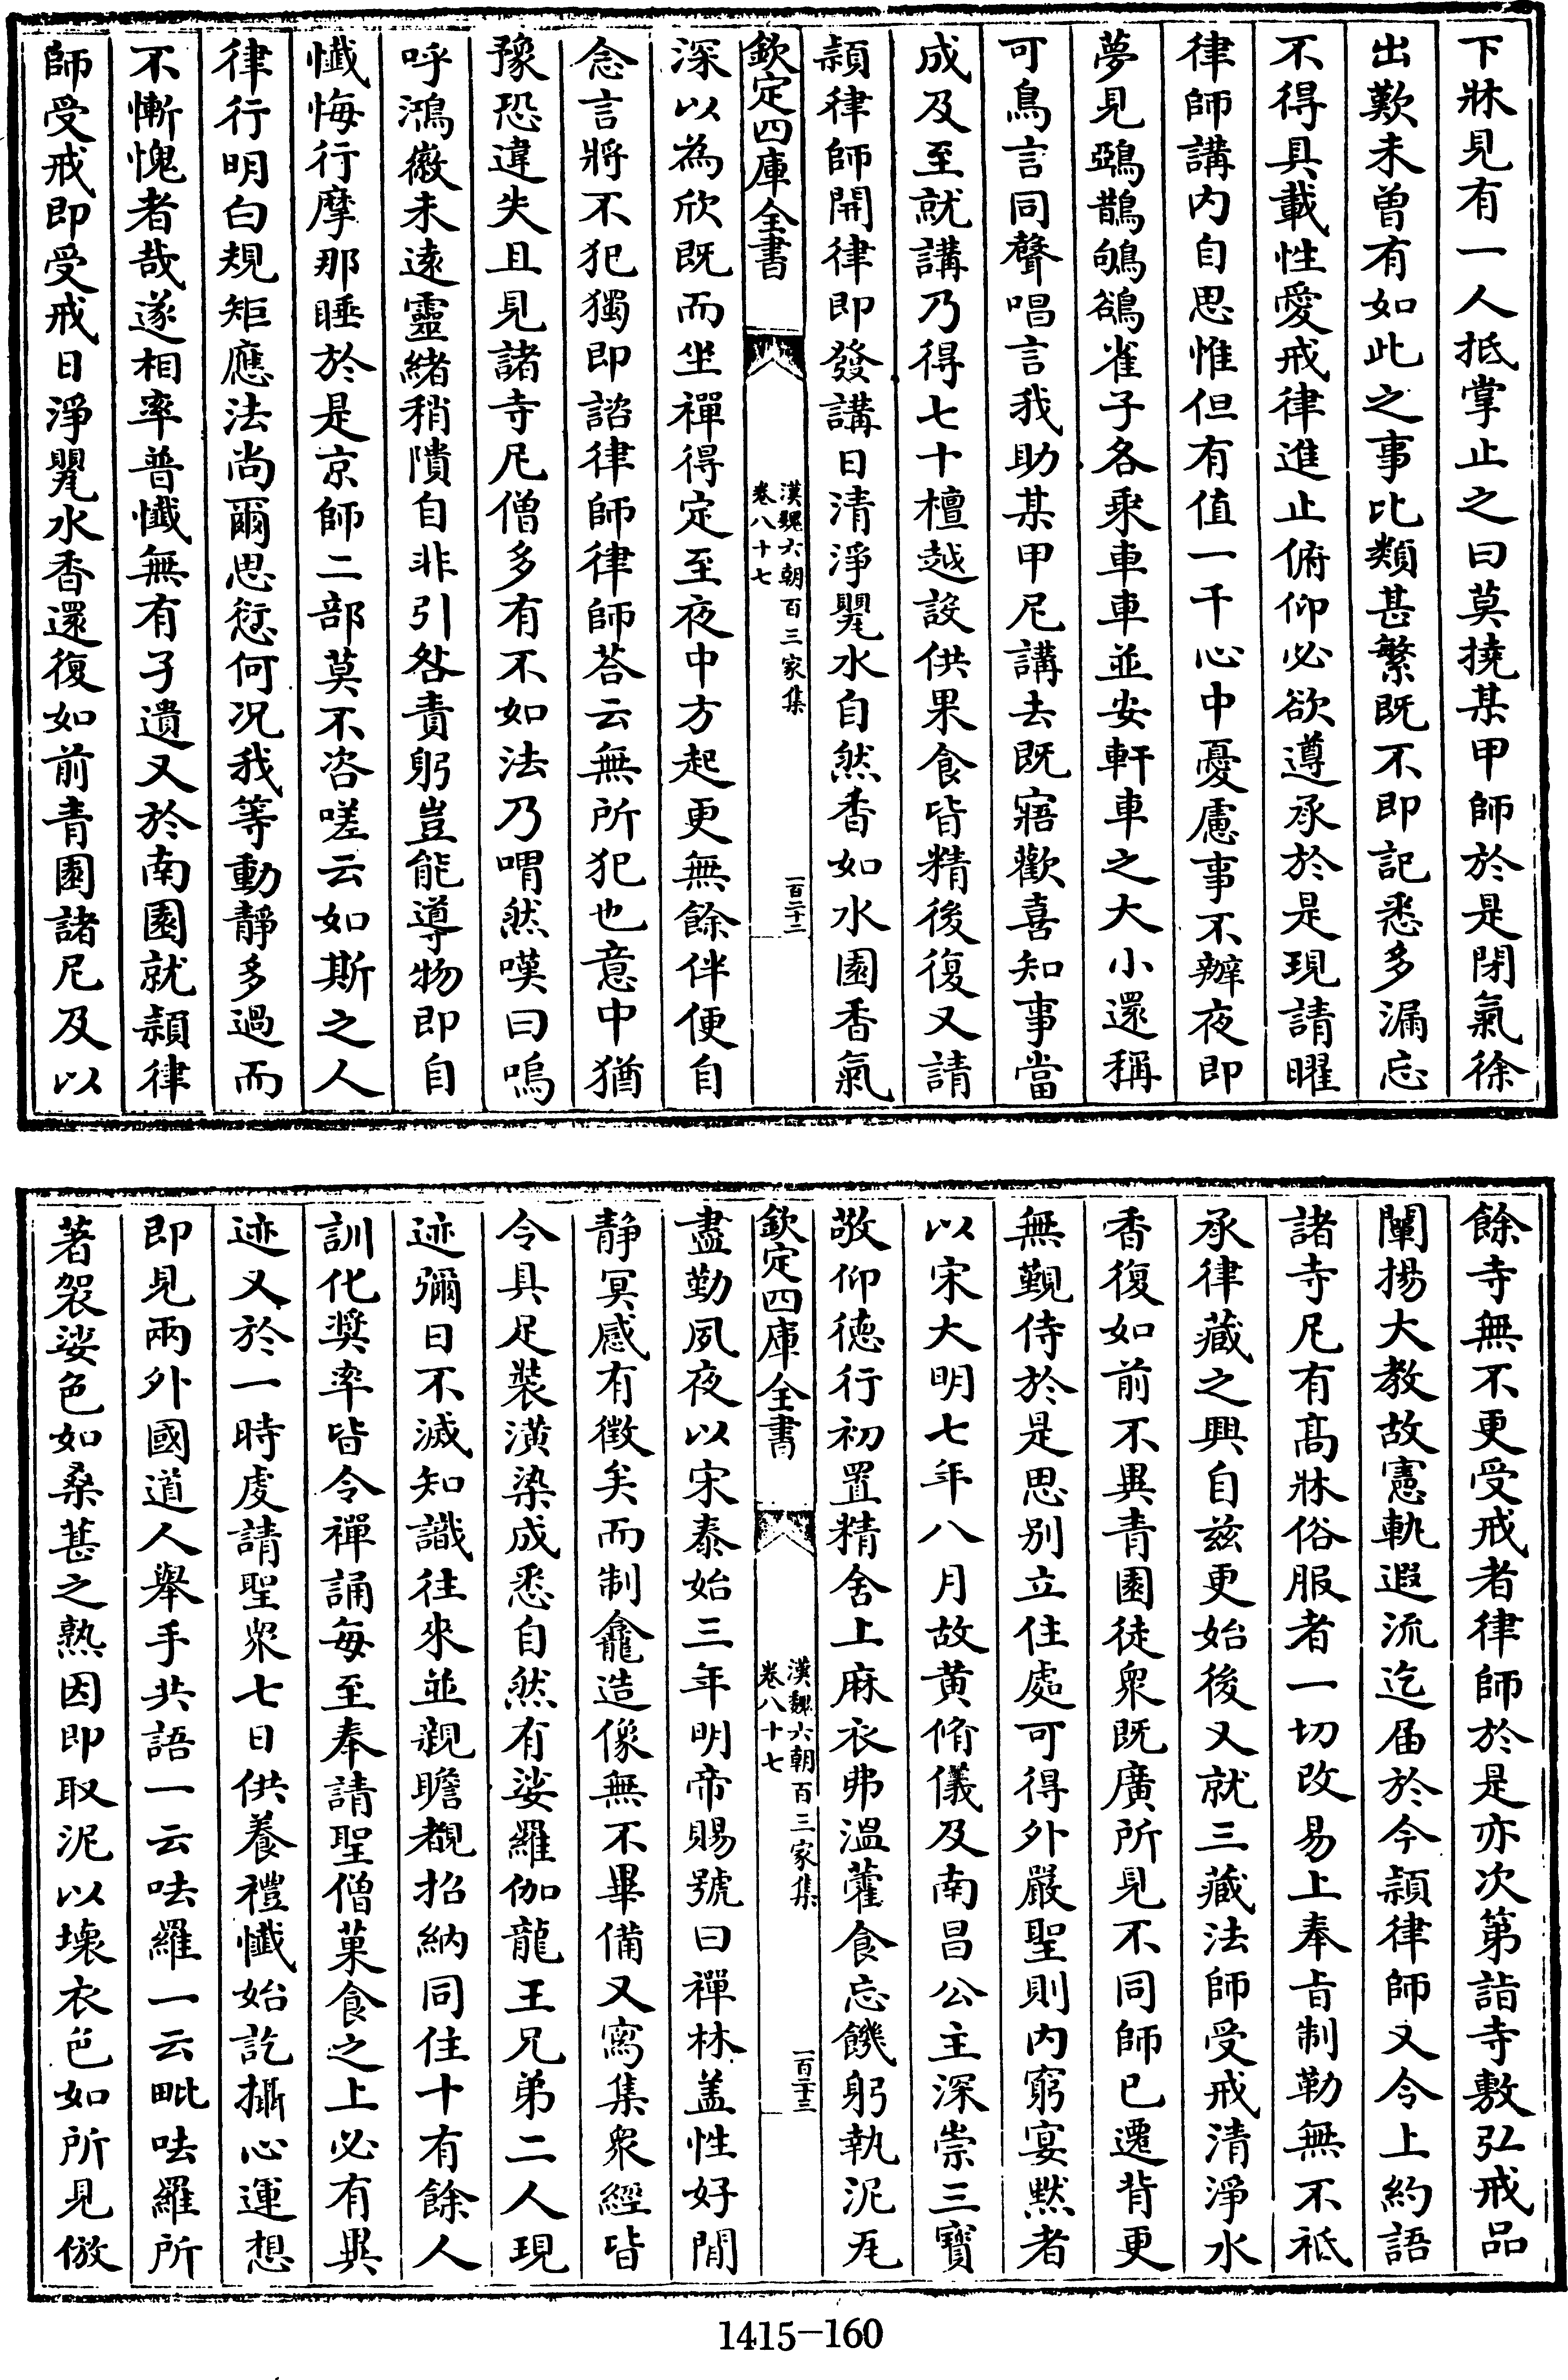 下牀見有一人抵掌止之曰莫撓某甲師於是閉氣徐
出歎未曾有如此之事比類甚繁既不即記悉多漏忘
不得具載性愛戒律進止俯仰必欲遵承於是現請曜
律師講内自思惟但有值一千心中憂慮事不辦夜即
夢見鵶鵲鴝鵒雀子各乘車車並安軒車之大小還稱
可鳥言同聲唱言我助某甲尼講去既寤歡喜知事當
成及至就講乃得七十檀越設供果食皆精後復又請
頴律師開律即發講日清淨甖水自然香如水園香氣
欽定四庫全書
漢魏六朝百三家集
卷八十七
一百二十二
深以為欣既而坐禪得定至夜中方起更無餘伴便自
念言將不犯獨即諮律師律師荅云無所犯也意中猶
豫恐違失且見諸寺尼僧多有不如法乃喟然嘆曰嗚
呼鴻徽未遠靈緒稍憒自非引咎責躬豈能導物即自
懺悔行摩那埵於是京師二部莫不咨嗟云如斯之人
律行明白規矩應法尚爾思愆何况我等動靜多過而
不慚愧者哉遂相率普懺無有孑遺又於南園就頴律
師受戒即受戒日淨甖水香還復如前青園諸尼及以
餘寺無不更受戒者律師於是亦次第詣寺敷弘戒品
闡揚大教故憲軌遐流迄届於今頴律師又令上約語
諸寺尼有髙牀俗服者一切改易上奉旨制勒無不祗
承律藏之興自兹更始後又就三藏法師受戒清淨水
香復如前不異青園徒衆既廣所見不同師已遷背更
無覲侍於是思别立住處可得外嚴聖則内窮宴黙者
以宋大明七年八月故黄脩儀及南昌公主深崇三寶
敬仰徳行初置精舍上麻衣弗溫藿食忘饑躬執泥瓦
欽定四庫全書
漢魏六朝百三家集
卷八十七
一百二十三
盡勤夙夜以宋泰始三年明帝賜號曰禪林盖性好閒
静冥感有徴矣而制龕造像無不畢備又寫集衆經皆
令具足裝潢染成悉自然有娑羅伽龍王兄弟二人現
迹彌日不滅知識往來並親瞻覩招納同住十有餘人
訓化奬率皆令禪誦每至奉請聖僧菓食之上必有異
迹又於一時虔請聖衆七日供養禮懺始訖攝心運想
即見兩外國道人舉手共語一云呿羅一云毗呿羅所
著袈娑色如桑葚之熟因即取泥以壊衣色如所見倣
1415-160